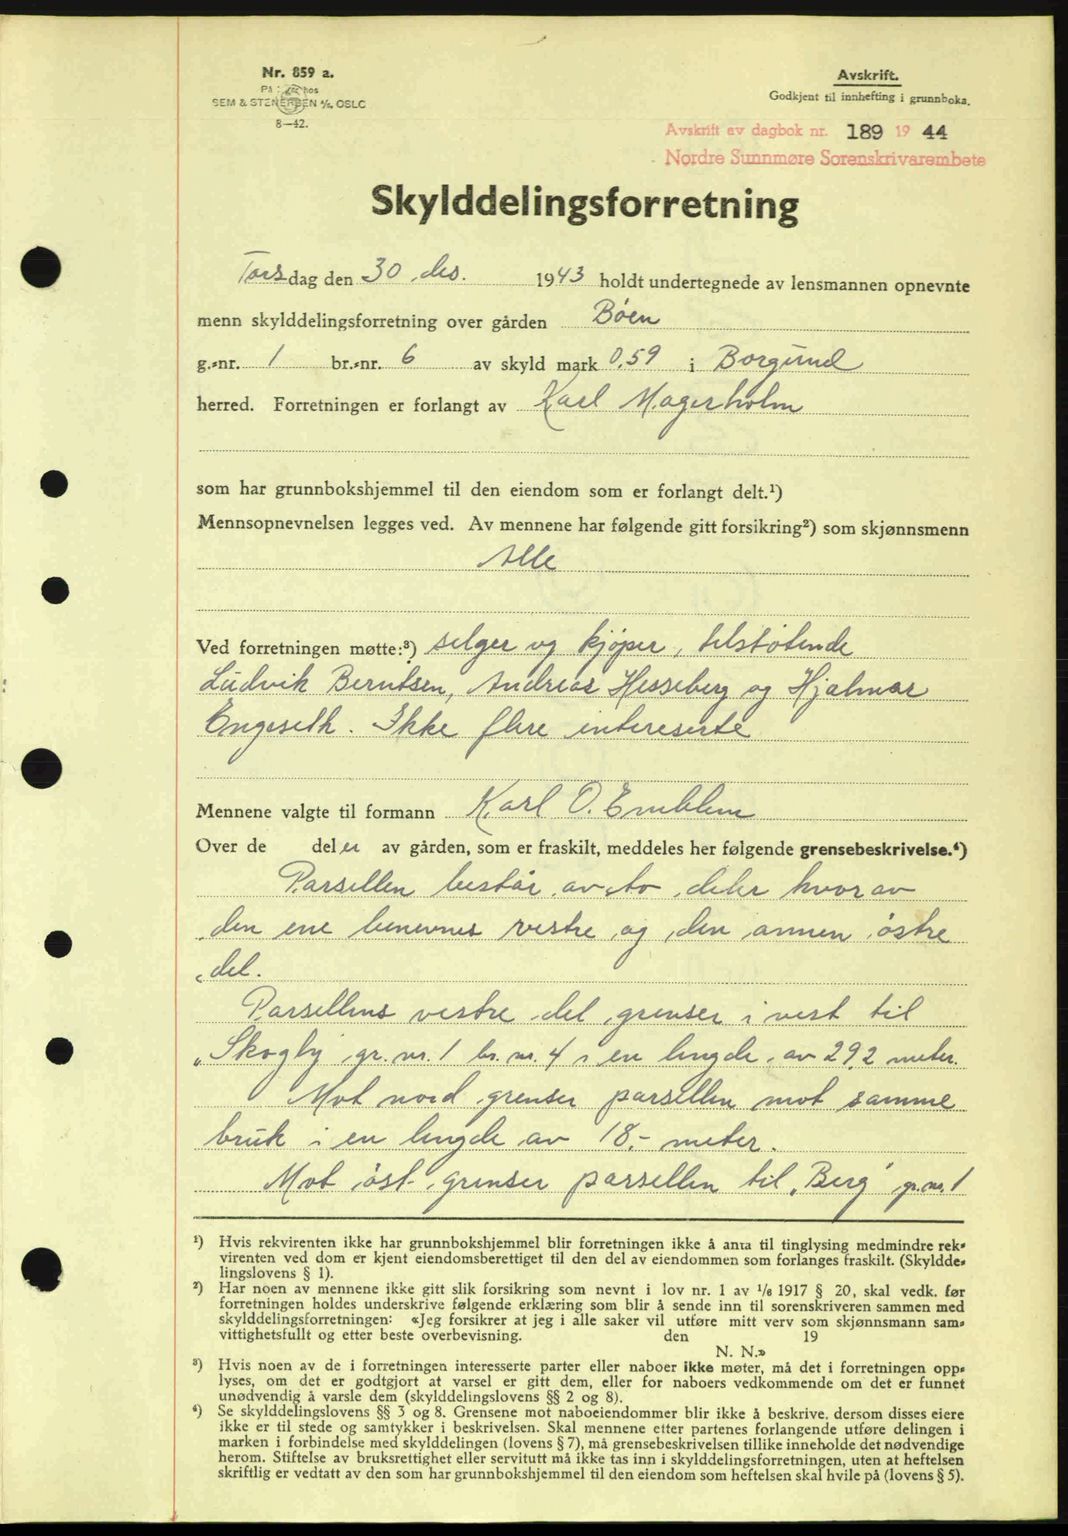 Nr. 859 a.
SEM & STENERSEN A/S, OSLO
8—42.
Avskrift.
Godkjent til innhefting i grunnboka.
Avskrift av dagbok nr. 189 19 44
Nordre Sunnmøre Sorenskrivarembete
Skylddelingsforretning
Torsdag den 30 des. 1943 holdt undertegnede av lensmannen opnevnte
menn skylddelingsforretning over gården Bøen
g.-nr. 1 br.-nr. 6 av skyld mark 0,59 i Borgund
herred. Forretningen er forlangt av Karl Magerholm
som har grunnbokshjemmel til den eiendom som er forlangt delt.¹)
Mennsopnevnelsen legges ved. Av mennene har følgende gitt forsikring²) som skjønnsmenn
Alle
Ved forretningen møtte:³) selger og kjøper, tilstøtende
Ludvik Berntsen, Andreas Hesseberg og Hjalmar
Engeseth. Ikke flere interesserte
Mennene valgte til formann Karl O. Emblem
Over de deler av gården, som er fraskilt, meddeles her følgende grensebeskrivelse.⁴)
Parsellen består av to deler hvorav
den ene benevnes vestre og den annen østre
del.
Parsellens vestre del grenser i vest til
"Skogly gr. nr. 1 br. nr. 4 i en lengde av 29,2 meter.
Mot nord grenser parsellen mot samme
bruk i en lengde av 18,- meter.
Mot øst grenser parsellen til "Berg" gr. nr. 1
¹) Hvis rekvirenten ikke har grunnbokshjemmel blir forretningen ikke å anta til tinglysing medmindre rek-
virenten ved dom er kjent eiendomsberettiget til den del av eiendommen som forlanges fraskilt. (Skyldde-
lingslovens § 1).
²) Har noen av mennene ikke gitt slik forsikring som nevnt i lov nr. 1 av 1/6 1917 § 20, skal vedk. før
forretningen holdes underskrive følgende erklæring som blir å sende inn til sorenskriveren sammen med
skylddelingsforretningen: «Jeg forsikrer at jeg i alle saker vil utføre mitt verv som skjønnsmann sam-
vittighetsfullt og etter beste overbevisning. den 19
N. N.»
³) Hvis noen av de i forretningen interesserte parter eller naboer ikke møter, må det i forretningen opp-
lyses, om det er godtgjort at varsel er gitt dem, eller for naboers vedkommende om det er funnet
unødvendig å varsle dem (skylddelingslovens §§ 2 og 8).
⁴) Se skylddelingslovens §§ 3 og 8. Grensene mot naboeiendommer blir ikke å beskrive, dersom disses eiere
ikke er til stede og samtykker i beskrivelsen. Skal mennene etter partenes forlangende utføre delingen i
marken i forbindelse med skylddelingen (lovens § 7), må grensebeskrivelsen tillike inneholde det nødvendige
herom. Stiftelse av bruksrettighet eller servitutt må ikke tas inn i skylddelingsforretningen, uten at heftelsen
skriftlig er vedtatt av den som har grunnbokshjemmel til den eiendom som heftelsen skal hvile på (lovens § 5).